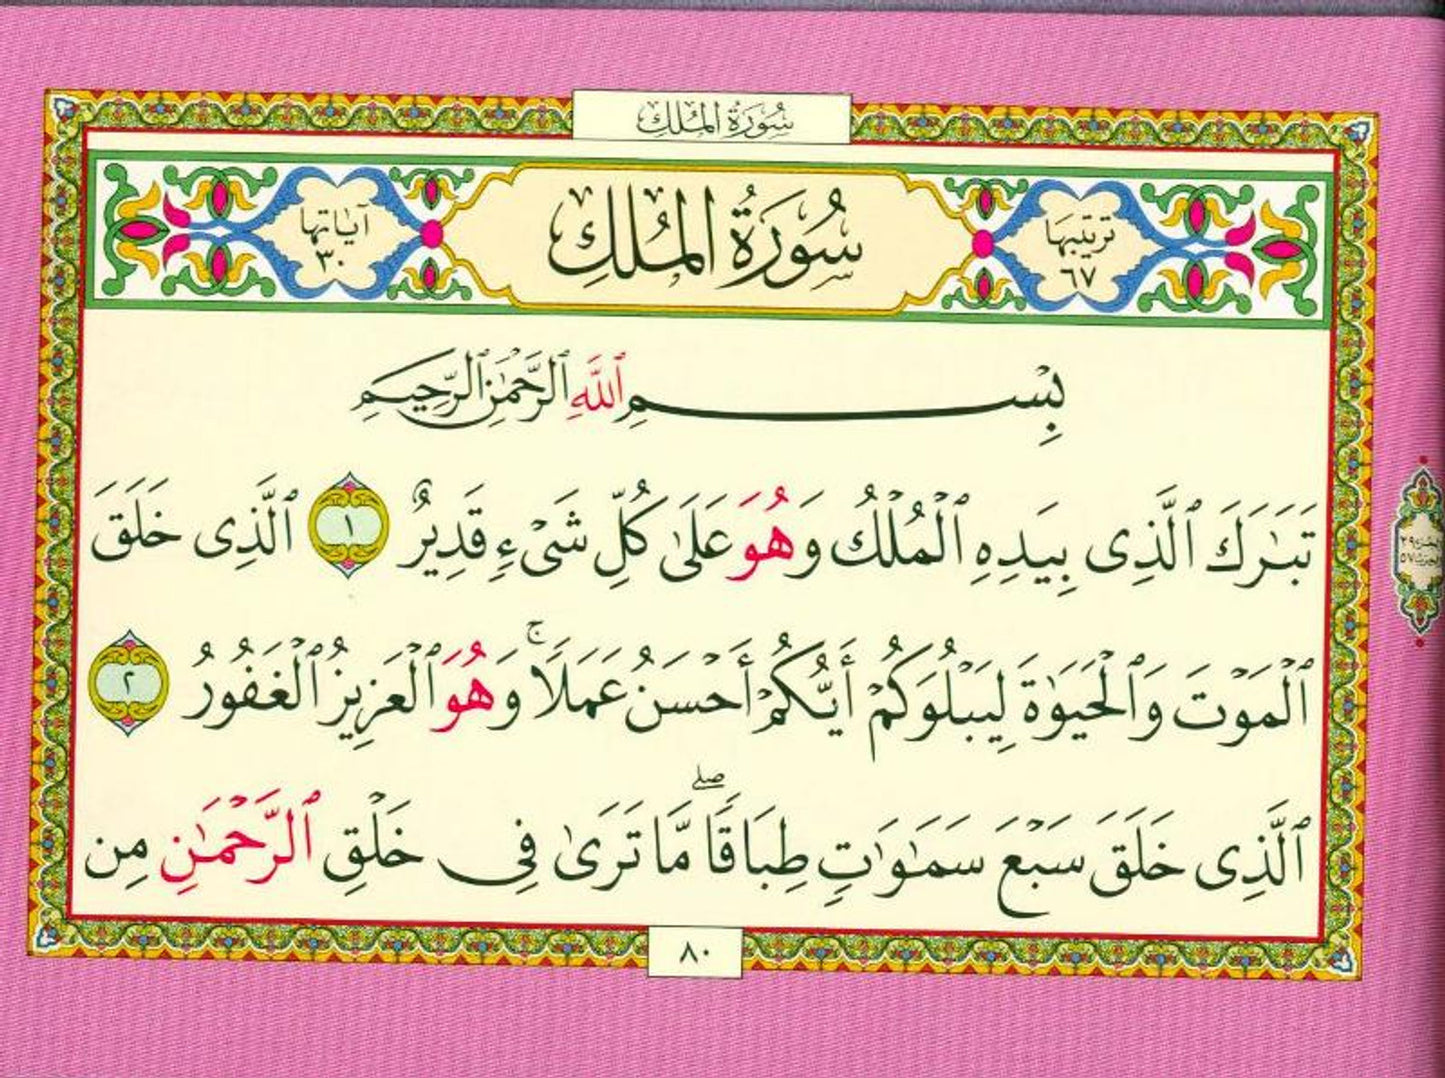 سُورَةُ المُلكِ
ترتيبها
٦٧
سُورَةُ المُلكِ
آياتها
٣٠
بِسْمِ ٱللَّهِ ٱلرَّحْمَٰنِ ٱلرَّحِيمِ
تَبَٰرَكَ ٱلَّذِى بِيَدِهِ ٱلْمُلْكُ وَهُوَ عَلَىٰ كُلِّ شَىْءٍ قَدِيرٌ ١ ٱلَّذِى خَلَقَ
ٱلْمَوْتَ وَٱلْحَيَوٰةَ لِيَبْلُوَكُمْ أَيُّكُمْ أَحْسَنُ عَمَلًا ۚ وَهُوَ ٱلْعَزِيزُ ٱلْغَفُورُ ٢
ٱلَّذِى خَلَقَ سَبْعَ سَمَٰوَٰتٍ طِبَاقًا ۖ مَّا تَرَىٰ فِى خَلْقِ ٱلرَّحْمَٰنِ مِن
الجزء ٢٩
الحزب ٥٧
٨٠